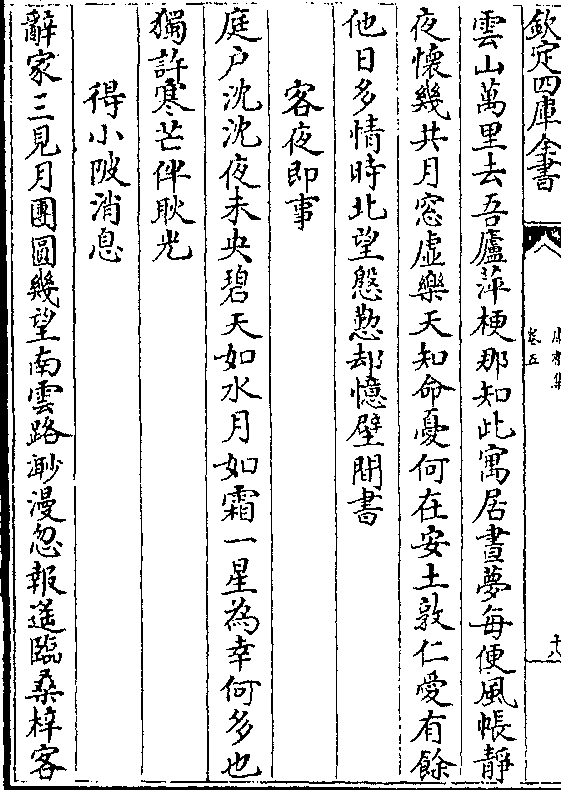 欽定四庫全書
卷五
十八
雲山萬里去吾廬萍梗那知此寓居晝夢每便風帳靜
夜懷幾共月窓虛樂天知命憂何在安土敦仁愛有餘
他日多情時北望慇懃却憶壁間書
客夜即事
庭户沈沈夜未央碧天如水月如霜一星為幸何多也
獨許寒芒伴耿光
得小陂消息
辭家三見月團圓幾望南雲路渺漫忽報遥臨桑梓客